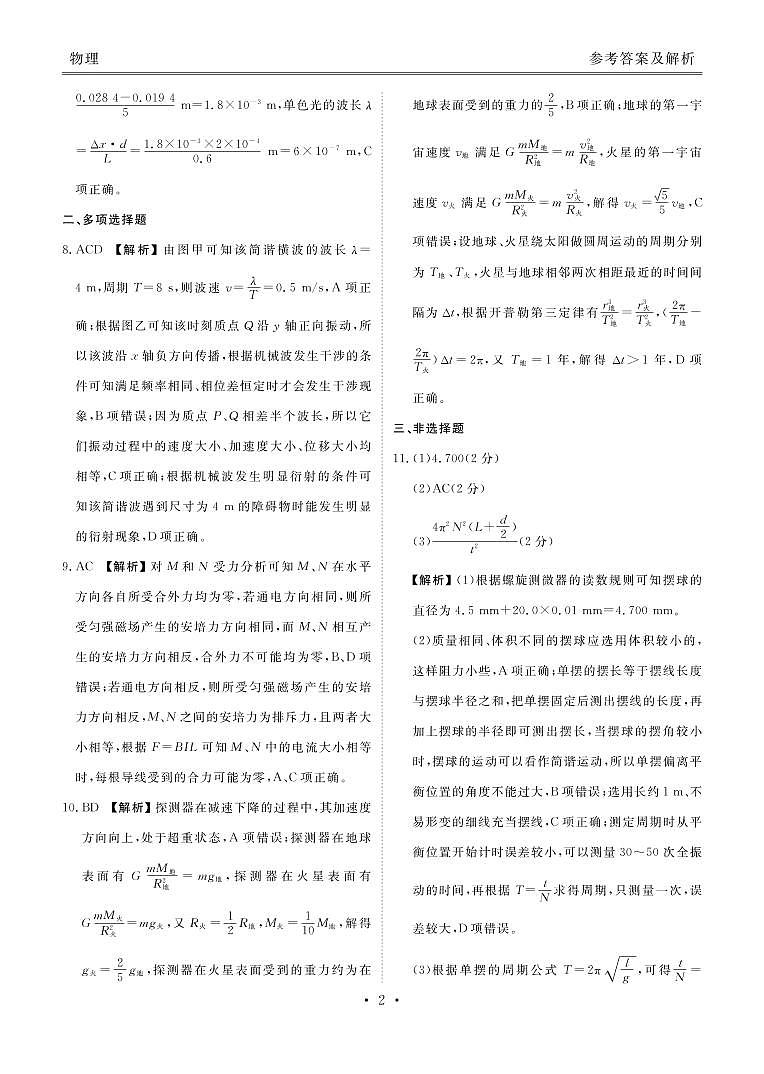 物理
参考答案及解析
0.028 4-0.019 4/5 m=1.8×10⁻³ m,单色光的波长 λ
=Δx·d/L=1.8×10⁻³×2×10⁻⁴/0.6 m=6×10⁻⁷ m,C
项正确。
二、多项选择题
8. ACD 【解析】由图甲可知该简谐横波的波长 λ=
4 m,周期 T=8 s,则波速 v=λ/T=0.5 m/s,A 项正
确;根据图乙可知该时刻质点 Q 沿 y 轴正向振动,所
以该波沿 x 轴负方向传播,根据机械波发生干涉的条
件可知满足频率相同、相位差恒定时才会发生干涉现
象,B 项错误;因为质点 P、Q 相差半个波长,所以它
们振动过程中的速度大小、加速度大小、位移大小均
相等,C 项正确;根据机械波发生明显衍射的条件可
知该简谐波遇到尺寸为 4 m 的障碍物时能发生明显
的衍射现象,D 项正确。
9. AC 【解析】对 M 和 N 受力分析可知 M、N 在水平
方向各自所受合外力均为零,若通电方向相同,则所
受匀强磁场产生的安培力方向相同,而 M、N 相互产
生的安培力方向相反,合外力不可能均为零,B、D 项
错误;若通电方向相反,则所受匀强磁场产生的安培
力方向相反,M、N 之间的安培力为排斥力,且两者大
小相等,根据 F=BIL 可知 M、N 中的电流大小相等
时,每根导线受到的合力可能为零,A、C 项正确。
10. BD 【解析】探测器在减速下降的过程中,其加速度
方向向上,处于超重状态,A 项错误;探测器在地球
表面有 G mM地/R²地 = mg地,探测器在火星表面有
G mM火/R²火=mg火,又 R火=1/2 R地,M火=1/10 M地,解得
g火=2/5 g地,探测器在火星表面受到的重力约为在
地球表面受到的重力的2/5,B 项正确;地球的第一宇
宙速度 v地 满足 G mM地/R²地=m v²地/R地,火星的第一宇宙
速度 v火 满足 G mM火/R²火=m v²火/R火,解得 v火=√5/5 v地,C
项错误;设地球、火星绕太阳做圆周运动的周期分别
为 T地、T火,火星与地球相邻两次相距最近的时间间
隔为 Δt,根据开普勒第三定律有r³地/T²地=r³火/T²火,(2π/T地-
2π/T火)Δt=2π,又 T地=1 年,解得 Δt>1 年,D 项
正确。
三、非选择题
11. (1)4.700(2 分)
(2)AC(2 分)
(3)4π²N²(L+d/2)/t²(2 分)
【解析】(1)根据螺旋测微器的读数规则可知摆球的
直径为 4.5 mm+20.0×0.01 mm=4.700 mm。
(2)质量相同、体积不同的摆球应选用体积较小的,
这样阻力小些,A 项正确;单摆的摆长等于摆线长度
与摆球半径之和,把单摆固定后测出摆线的长度,再
加上摆球的半径即可测出摆长,当摆球的摆角较小
时,摆球的运动可以看作简谐运动,所以单摆偏离平
衡位置的角度不能过大,B 项错误;选用长约 1 m、不
易形变的细线充当摆线,C 项正确;测定周期时从平
衡位置开始计时误差较小,可以测量 30~50 次全振
动的时间,再根据 T=t/N求得周期,只测量一次,误
差较大,D 项错误。
(3)根据单摆的周期公式 T=2π√(l/g),可得t/N=
• 2 •